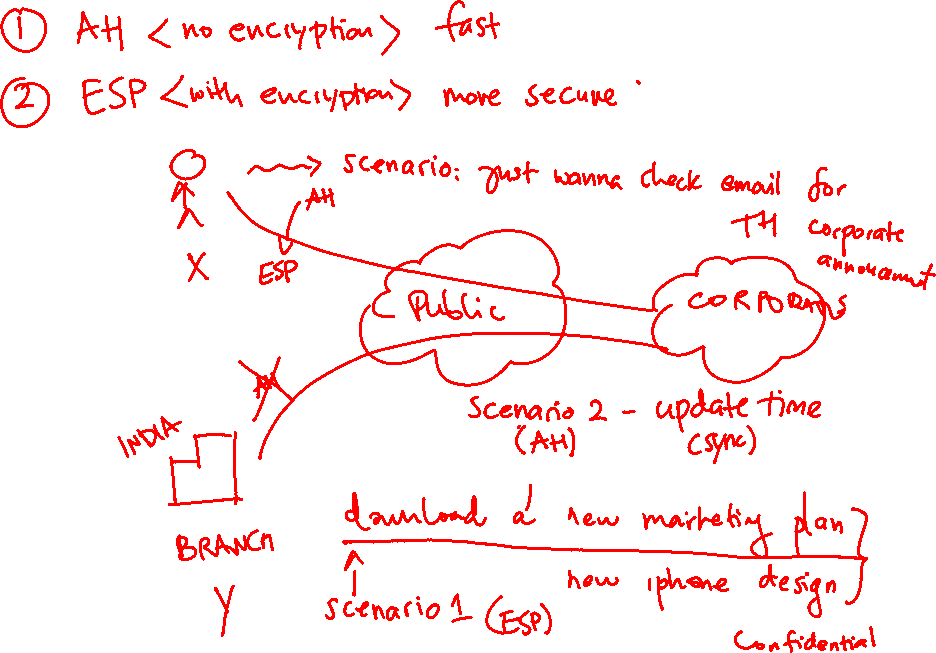 ① AH <no encryption> fast
② ESP <with encryption> more secure
scenario: just wanna check email for
TH corporate
AH
X
ESP
Public
CORPORATE
AH
scenario 2 - update time
(AH) (sync)
INDIA
download a new marketing plan
BRANCH
new iphone design
Y
scenario 1 (ESP)
Confidential